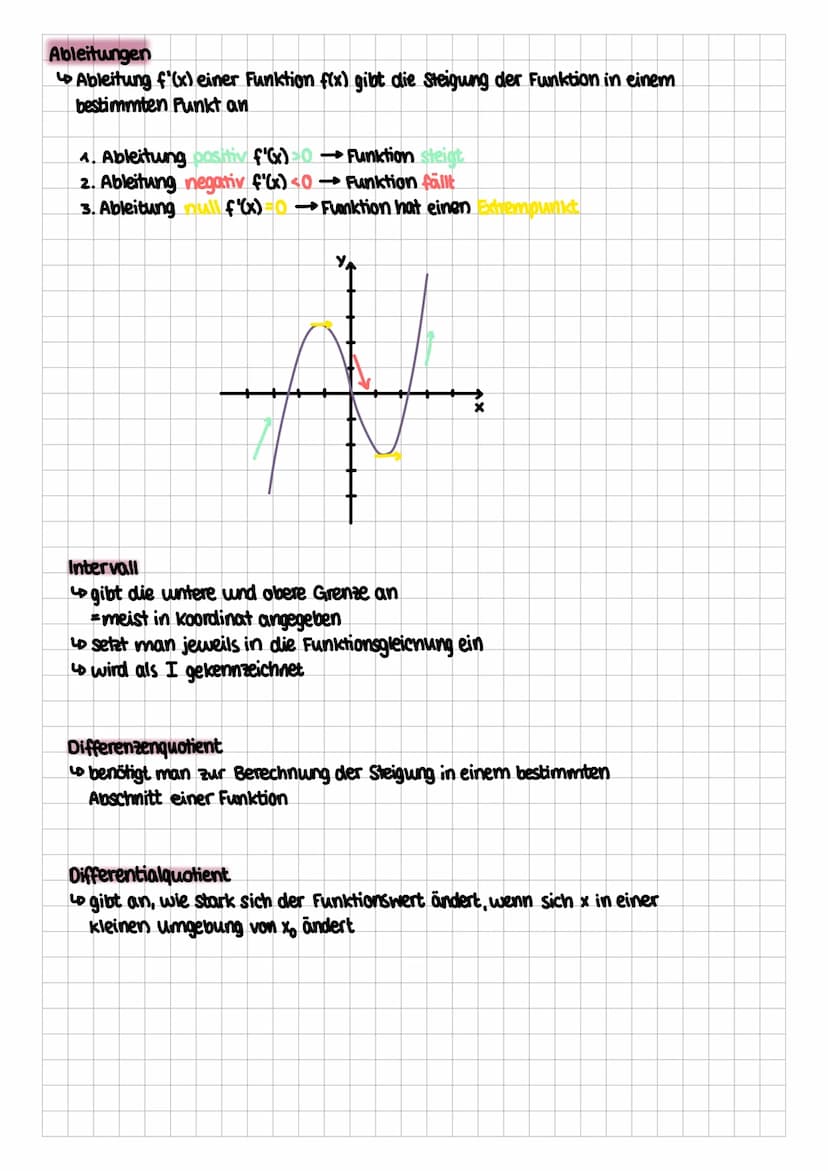 Ableitungen
↳ Ableitung f'(x) einer Funktion f(x) gibt die Steigung der Funktion in einem
bestimmten Punkt an
1. Ableitung positiv f'(x) >0 → Funktion steigt
2. Ableitung negativ f'(x) <0 → Funktion fällt
3. Ableitung null f'(x) =0 → Funktion hat einen Extrempunkt
y
x
Intervall
↳ gibt die untere und obere Grenze an
=meist in Koordinat angegeben
↳ setzt man jeweils in die Funktionsgleichung ein
↳ wird als I gekennzeichnet
Differenzenquotient
↳ benötigt man zur Berechnung der Steigung in einem bestimmten
Abschnitt einer Funktion
Differentialquotient
↳ gibt an, wie stark sich der Funktionswert ändert, wenn sich x in einer
kleinen Umgebung von x₀ ändert